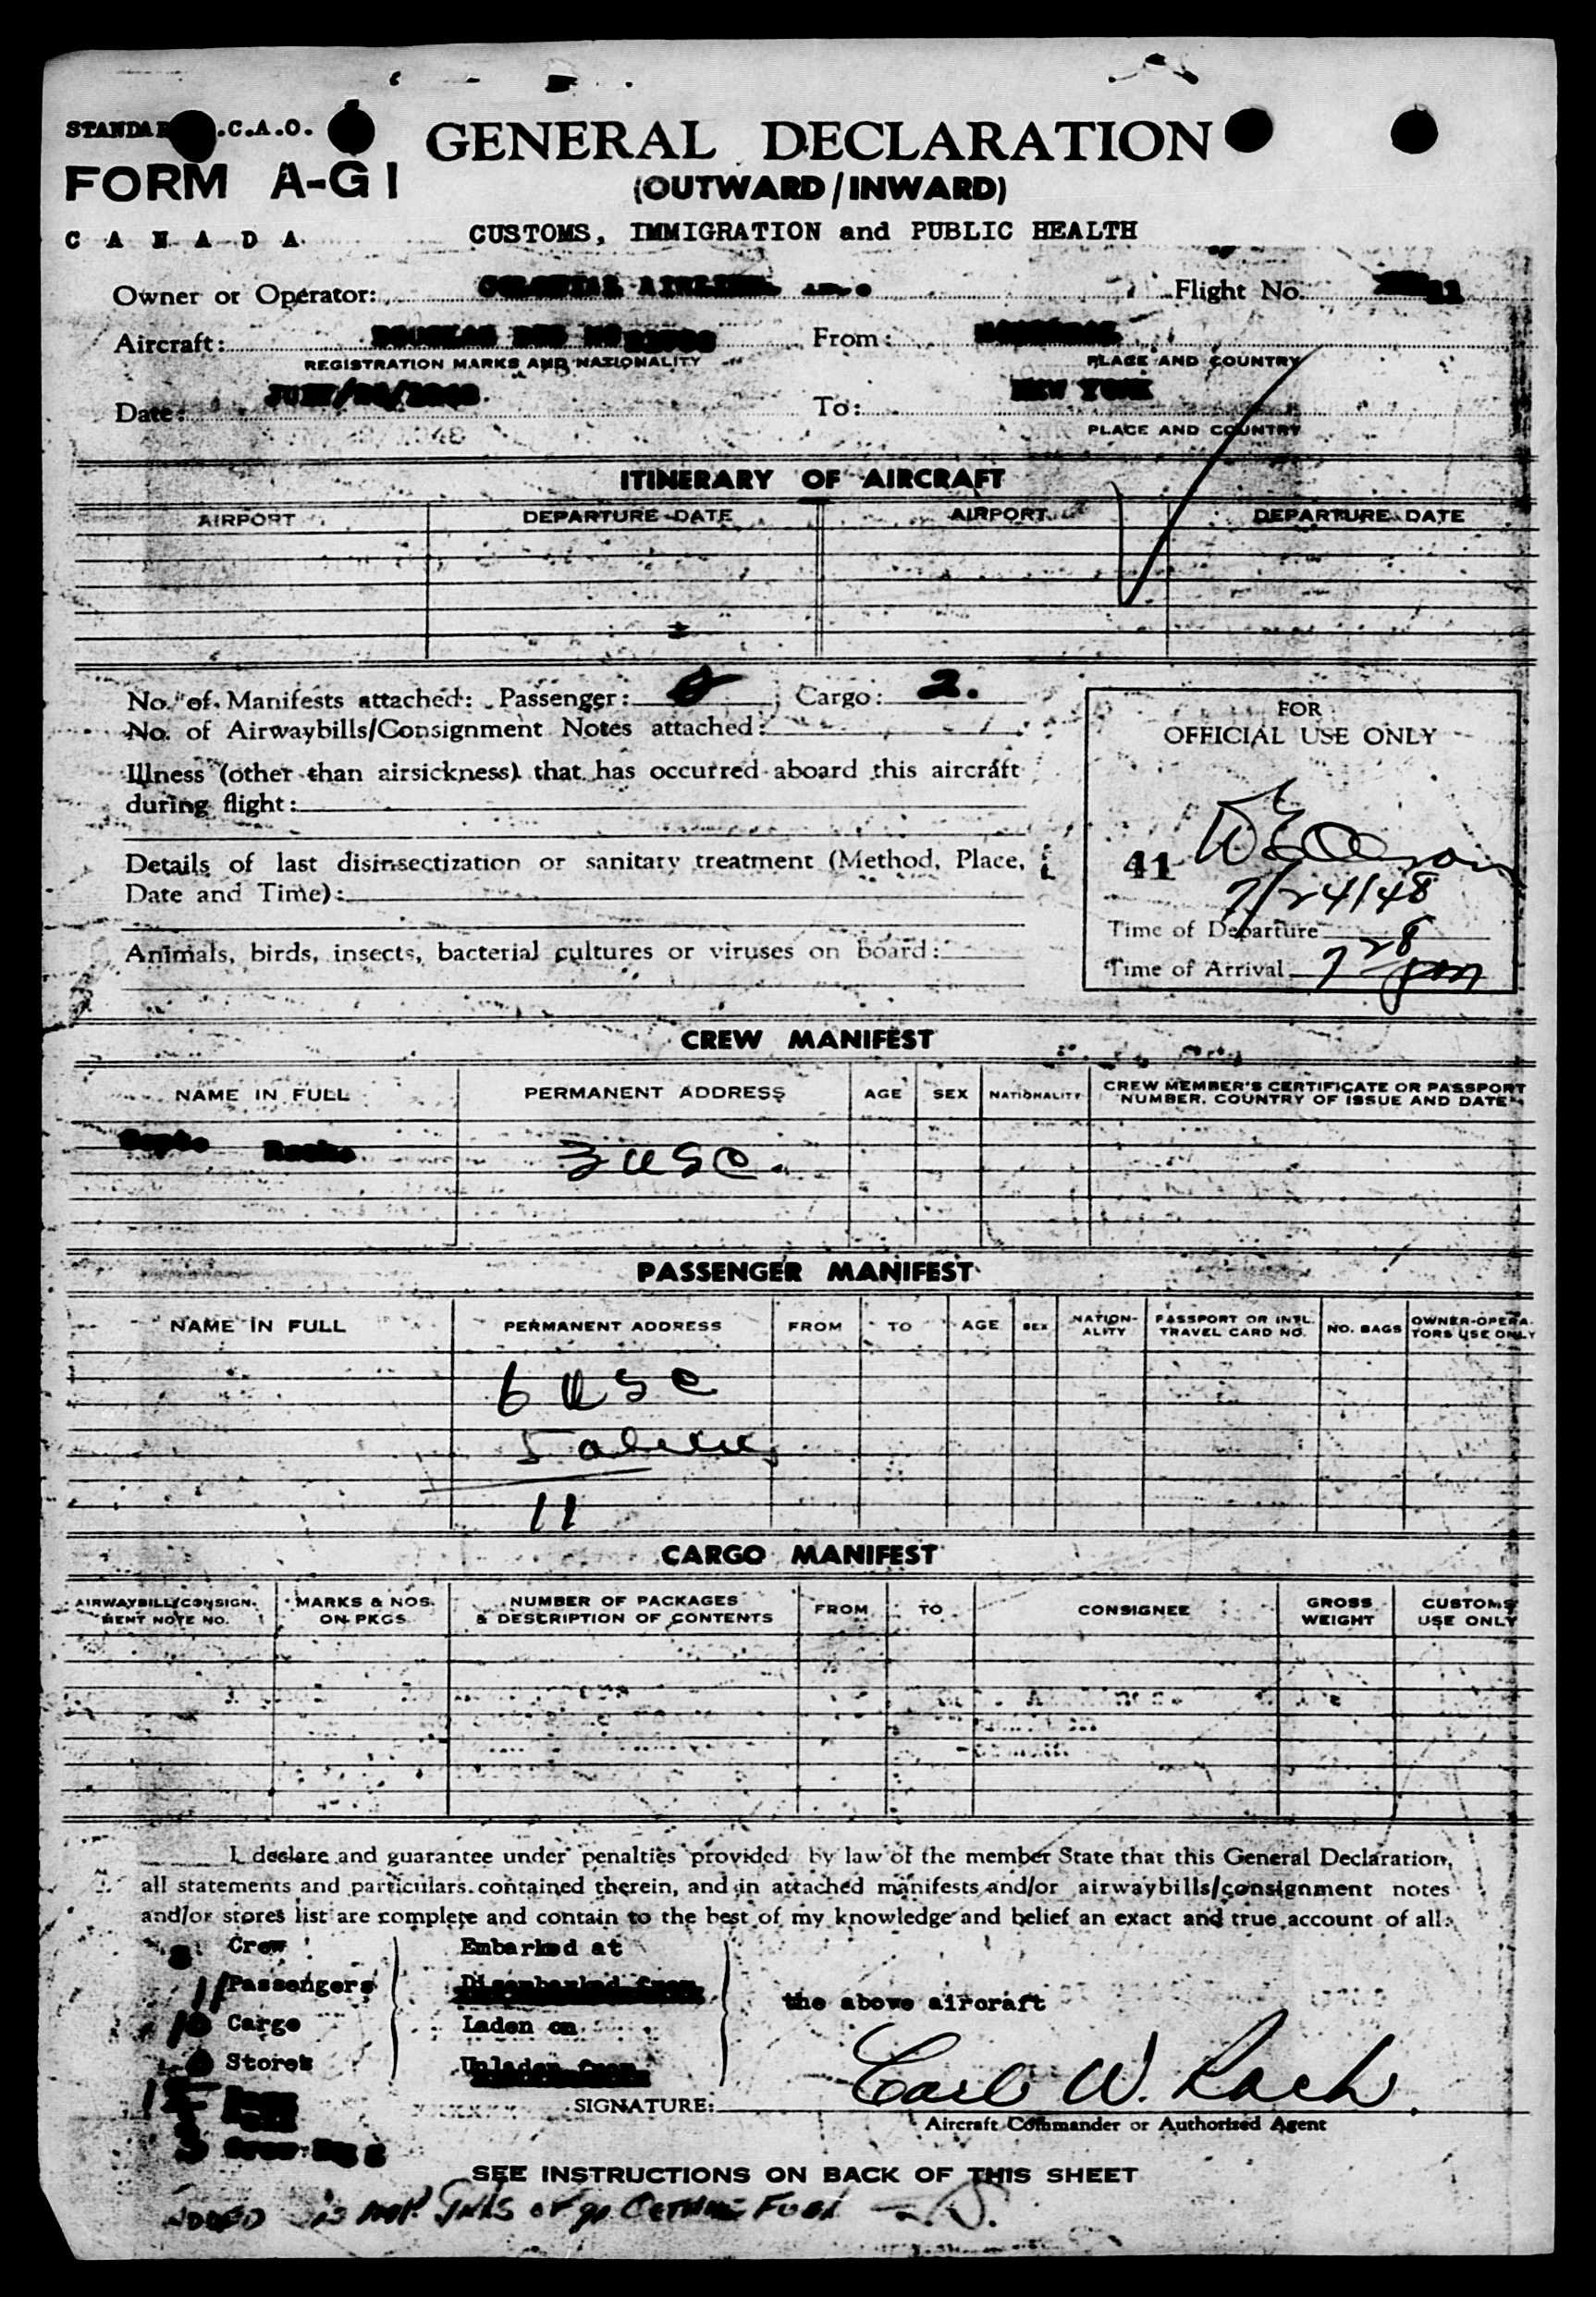 .C.A.O.
FORM A-G1
GENERAL DECLARATION
(OUTWARD/INWARD)
CANADA
CUSTOMS, IMMIGRATION and PUBLIC HEALTH
Owner or Operator: COLONIAL AIRLINES Flight No.
Aircraft: DOUGLAS From: MONTREAL
REGISTRATION MARKS AND NATIONALITY PLACE AND COUNTRY
Date: To: NEW YORK
PLACE AND COUNTRY
ITINERARY OF AIRCRAFT
AIRPORT DEPARTURE DATE AIRPORT DEPARTURE DATE
No. of Manifests attached: Passenger: Cargo: 2.
No. of Airwaybills/Consignment Notes attached:
Illness (other than airsickness) that has occurred aboard this aircraft
during flight:
Details of last disinsectization or sanitary treatment (Method, Place,
Date and Time):
Animals, birds, insects, bacterial cultures or viruses on board:
FOR
OFFICIAL USE ONLY
41
7/24/48
Time of Departure
Time of Arrival 7 28 pm
CREW MANIFEST
NAME IN FULL PERMANENT ADDRESS AGE SEX NATIONALITY CREW MEMBER'S CERTIFICATE OR PASSPORT
NUMBER, COUNTRY OF ISSUE AND DATE
3 USC.
PASSENGER MANIFEST
NAME IN FULL PERMANENT ADDRESS FROM TO AGE SEX NATION-
ALITY PASSPORT OR INTL.
TRAVEL CARD NO. NO. BAGS OWNER-OPERA-
TORS USE ONLY
6 USC
5 aliens
11
CARGO MANIFEST
AIRWAYBILL/CONSIGN-
MENT NOTE NO. MARKS & NOS.
ON PKGS. NUMBER OF PACKAGES
& DESCRIPTION OF CONTENTS FROM TO CONSIGNEE GROSS
WEIGHT CUSTOMS
USE ONLY
I declare and guarantee under penalties provided by law of the member State that this General Declaration,
all statements and particulars contained therein, and in attached manifests and/or airwaybills/consignment notes
and/or stores list are complete and contain to the best of my knowledge and belief an exact and true account of all:
Crew Embarked at
11 Passengers Disembarked from
the above aircraft
Cargo Laden on
Stores Unladen from
SIGNATURE: Carl W.
Aircraft Commander or Authorized Agent
SEE INSTRUCTIONS ON BACK OF THIS SHEET